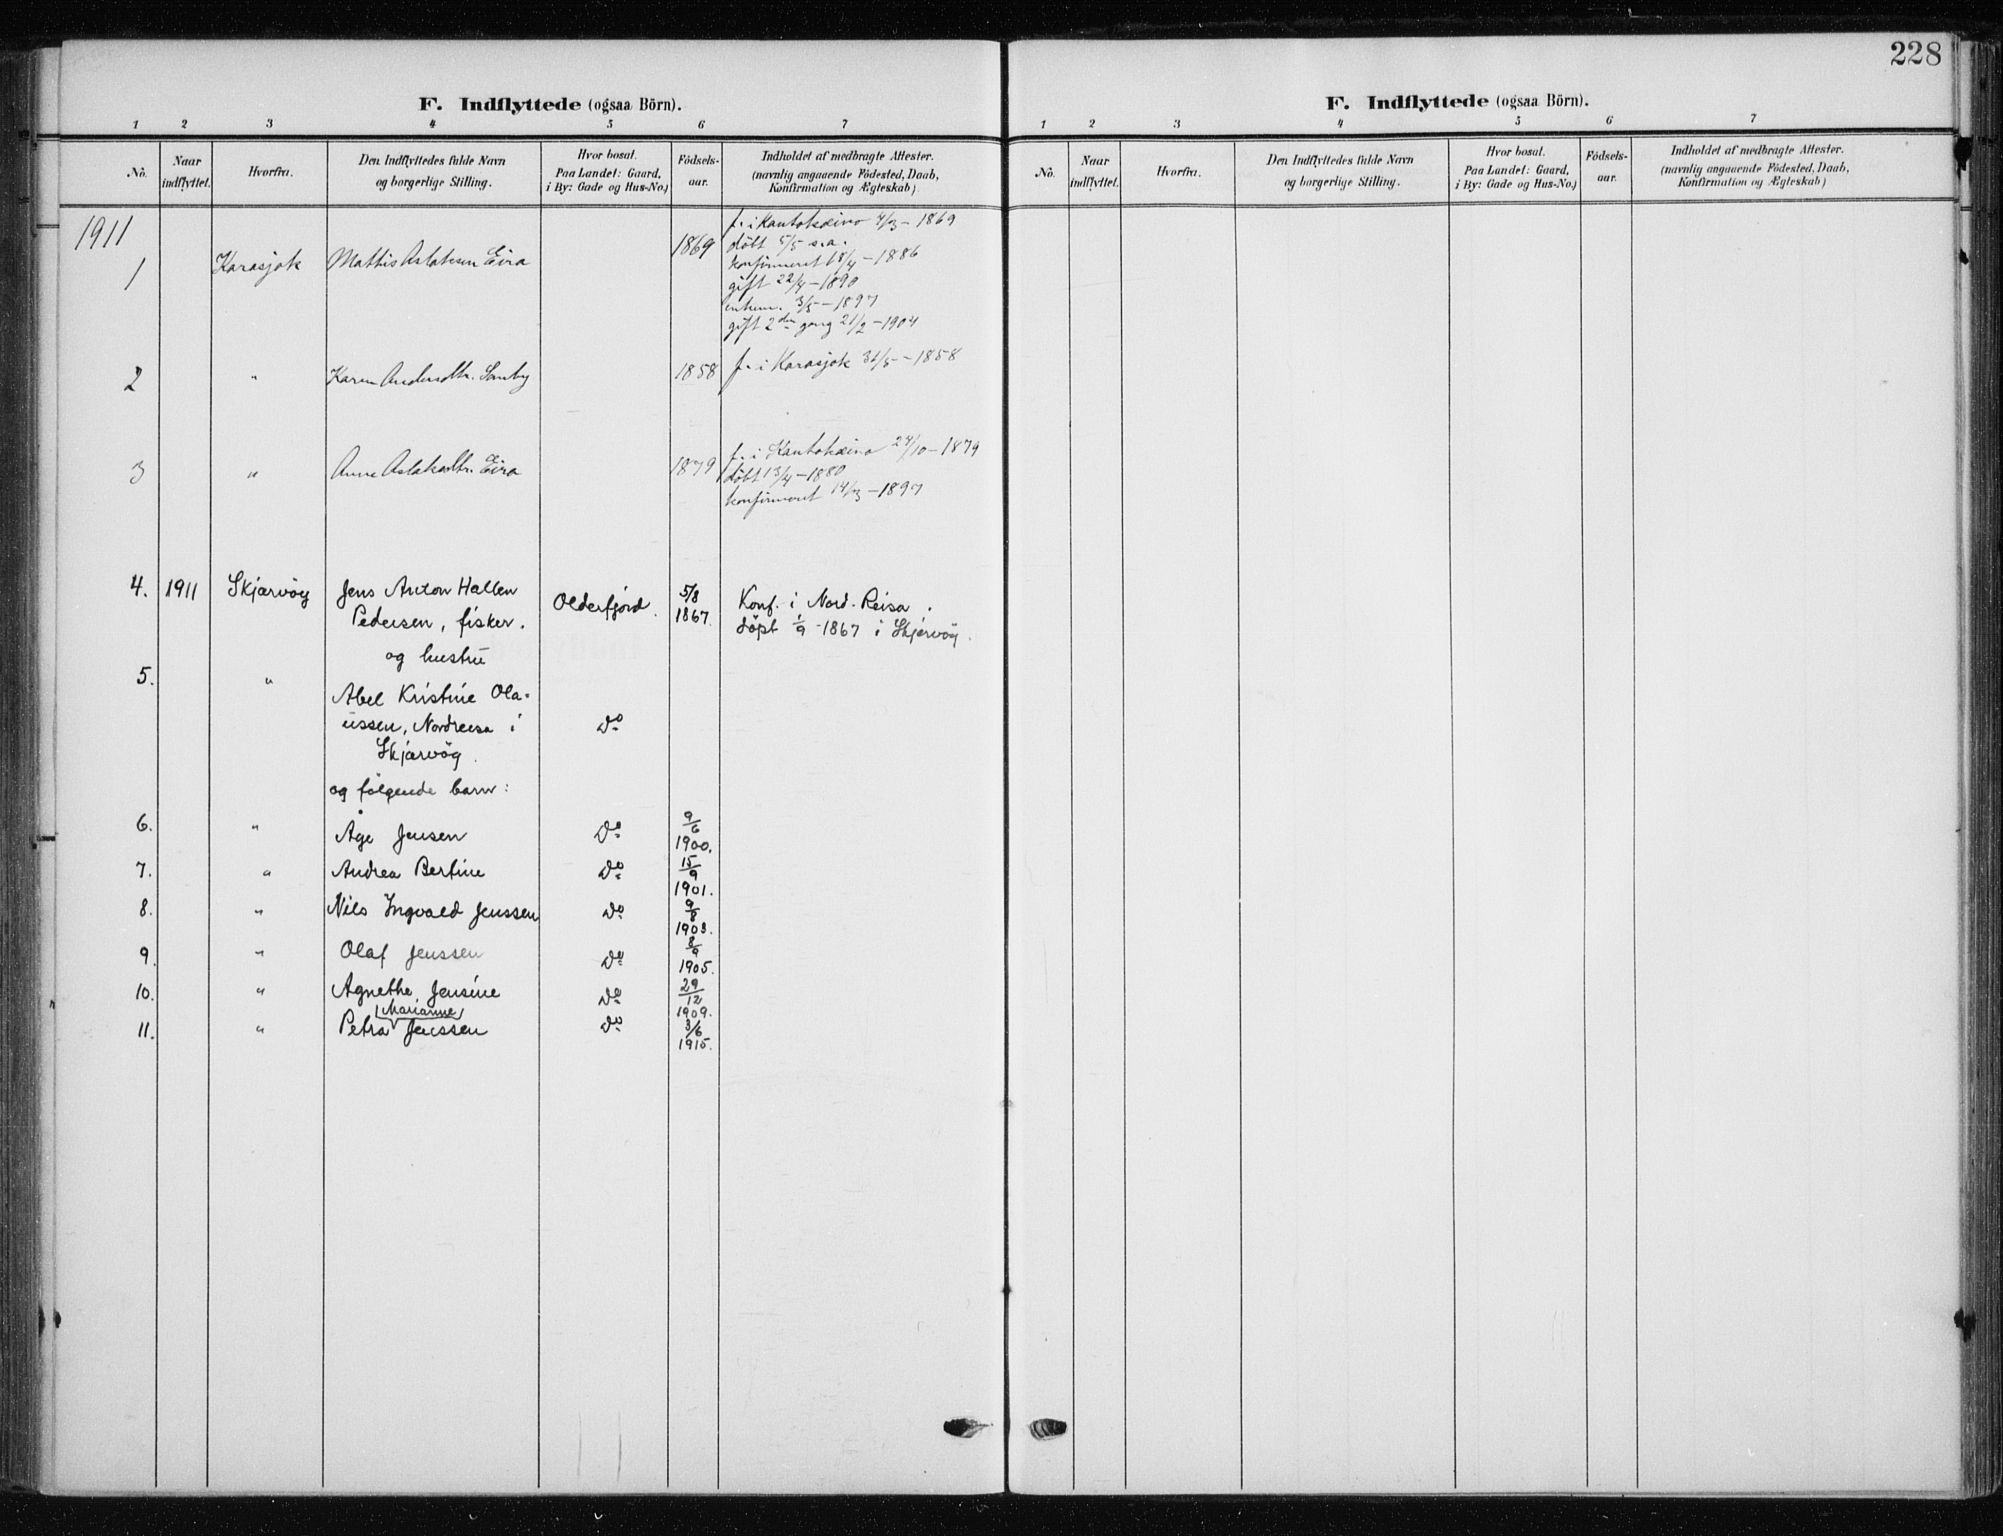 228
F. Indflyttede (ogsaa Börn).
1 2 3 4 5 6 7
No. Naar indflyttet. Hvorfra. Den Indflyttedes fulde Navn og borgerlige Stilling. Hvor bosat. Paa Landet: Gaard, i By: Gade og Hus-No.) Födsels-aar. Indholdet af medbragte Attester. (navnlig angaaende Födested, Daab, Konfirmation og Ægteskab)
1911
1 Karasjok Mathis Aslaksen Eira 1869 f. i Kautokeino 4/3 – 1869
döbt 5/5 s.a.
konfirmeret 18/4 – 1886
gift 22/4 – 1890
enkem. 3/5 – 1897
gift 2den gang 21/2 – 1904
2 " Karen Andersdtr. Somby 1858 f. i Karasjok 31/5 – 1858
3 " Anne Aslaksdtr. Eira 1879 f. i Kautokeino 24/10 – 1879
döbt 13/4 – 1880
konfirmeret 14/3 – 1897
4. 1911 Skjærvöy Jens Anton Hallen Olderfjord. 5/8
Pedersen, fisker. 1867. Konf. i Nord-Reisa.
döpt 1/9 - 1867 i Skjervöy.
og hustru
5. "
Abel Kristine Ola-
ussen, Nordreisa i Do
Skjærvöy.
og følgende barn:
6. " Åge Jensen Do 9/6
1900.
7. " Andrea Bertine Do 15/9
1901.
8. " Nils Ingvald Jenssen Do 9/8
1903.
9. " Olaf Jenssen Do 8/9
1905.
10. " Agnethe Jensine Do 29/12
1909.
Marianne
11. " Petra Jenssen Do 3/6
1915.
F. Indflyttede (ogsaa Börn).
1 2 3 4 5 6 7
No. Naar indflyttet. Hvorfra. Den Indflyttedes fulde Navn og borgerlige Stilling. Hvor bosat. Paa Landet: Gaard, i By: Gade og Hus-No.) Födsels-aar. Indholdet af medbragte Attester. (navnlig angaaende Födested, Daab, Konfirmation og Ægteskab)